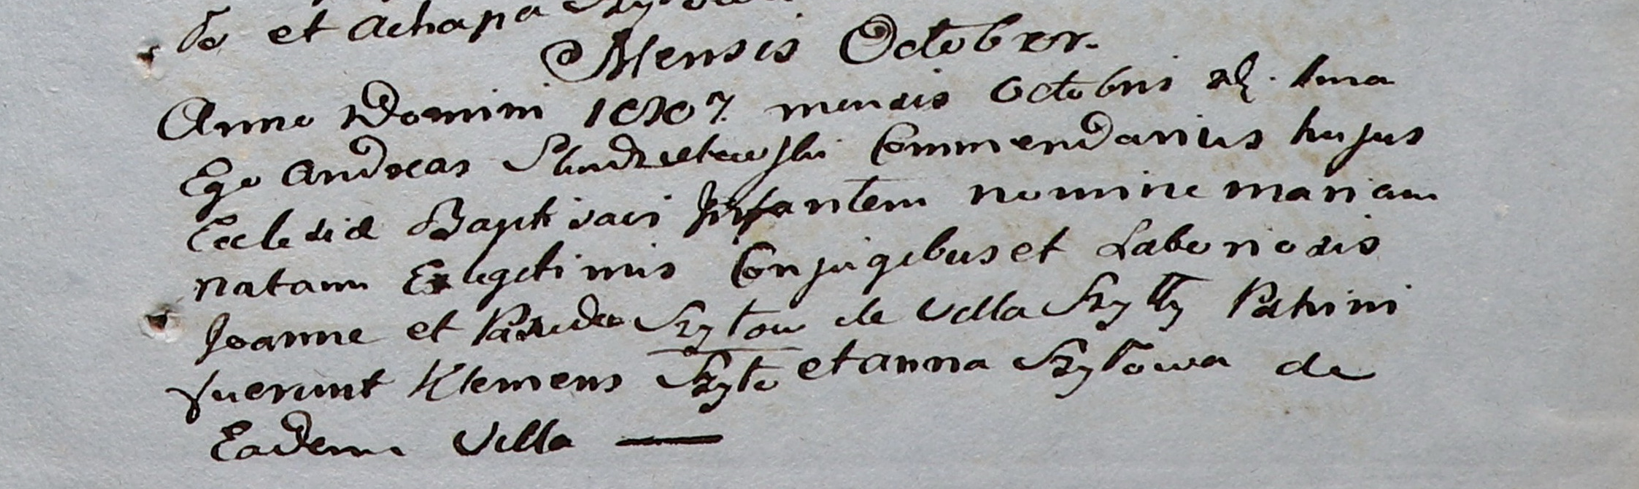 et Achapa
Mensis October.
Anno Domini 1807. mensis Octobris 1ma
Ego Andreas Commendarius hujus
Eclesiæ Baptisavi Infantem nomine mariam
natam Ex legitimis Conjugibus et Laboriosis
Joanne et Szytow de Villa Szytty Patrini
fuerunt Klemens Szyto et anna Szytowa de
Eadem Villa —